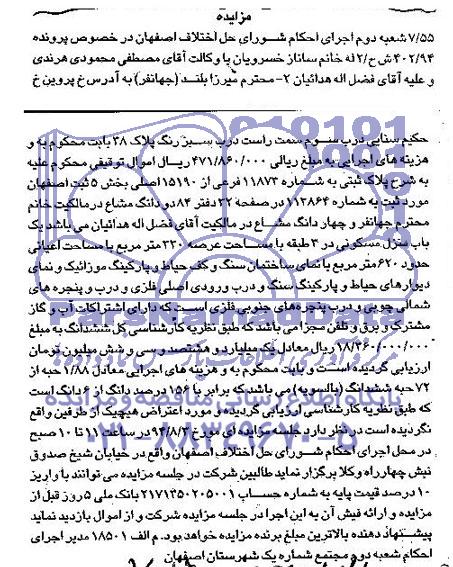 مزایده
۷/۵۵ شعبه دوم اجرای احکام شورای حل اختلاف اصفهان در خصوص پرونده
۴۰۲/۹۴ ش ح/۲ له خانم ساناز خسرویان با وکالت آقای مصطفی محمودی هرندی
و علیه آقای فضل اله هدائیان ۲- محترم میرزا بلند (جهانفر) به آدرس خ پروین خ
حکیم سنایی درب سوم سمت راست درب سبز رنگ پلاک ۳۸ بابت محکوم به و
هزینه های اجرایی به مبلغ ریالی ۴۷۱/۸۶۰/۰۰۰ ریال اموال توقیفی محکوم علیه
به شرح پلاک ثبتی به شماره ۱۱۸۷۳ فرعی از ۱۵۱۹۰ اصلی بخش ۵ ثبت اصفهان
مورد ثبت به شماره ۱۱۳۸۶۴ در صفحه ۳۲ دفتر ۸۴ دو دانگ مشاع در مالکیت خانم
محترم جهانفر و چهار دانگ مشاع در مالکیت آقای فضل اله هدائیان می باشد یک
باب منزل مسکونی در ۳ طبقه با مساحت عرصه ۳۳۰ متر مربع با مساحت اعیانی
حدود ۶۲۰ متر مربع با نمای ساختمان سنگ و کف حیاط و پارکینگ موزائیک و نمای
دیوارهای حیاط و پارکینگ سنگ و درب ورودی اصلی فلزی و درب و پنجره های
شمالی چوبی و درب پنجره های جنوبی فلزی است که دارای اشتراکات آب و گاز
مشترک و برق و تلفن مجزا می باشد که طبق نظریه کارشناسی کل ششدانگ به مبلغ
۱۸/۳۶۰/۰۰۰/۰۰۰ ریال معادل یک میلیارد و هشتصد و سی و شش میلیون تومان
ارزیابی گردیده است و بابت محکوم به و هزینه های اجرایی معادل ۱/۸۸ حبه از
۷۲ حبه ششدانگ (بالسویه) می باشد که برابر با ۱۵۶ درصد دانگ از ۶ دانگ است
که طبق نظریه کارشناسی ارزیابی گردیده و مورد اعتراض هیچیک از طرفین واقع
نگردیده است در نظر دارد جلسه مزایده ای مورخ ۹۴/۸/۳۰ در ساعت ۱۱ تا ۱۰ صبح
در محل اجرای احکام شورای حل اختلاف اصفهان واقع در خیابان شیخ صدوق
نبش چهارراه وکلا برگزار نماید طالبین شرکت در جلسه مزایده می توانند با واریز
۱۰ درصد قیمت پایه به شماره حساب ۲۱۷۱۳۵۰۲۰۵۰۰۱ بانک ملی ۵ روز قبل از
مزایده و ارائه فیش آن به این اجرا در جلسه مزایده شرکت و از اموال بازدید نماید
پیشنهاد دهنده بالاترین مبلغ برنده مزایده خواهد بود. م الف ۱۸۵۰۱ مدیر اجرای
احکام شعبه دوم مجتمع شماره یک شهرستان اصفهان